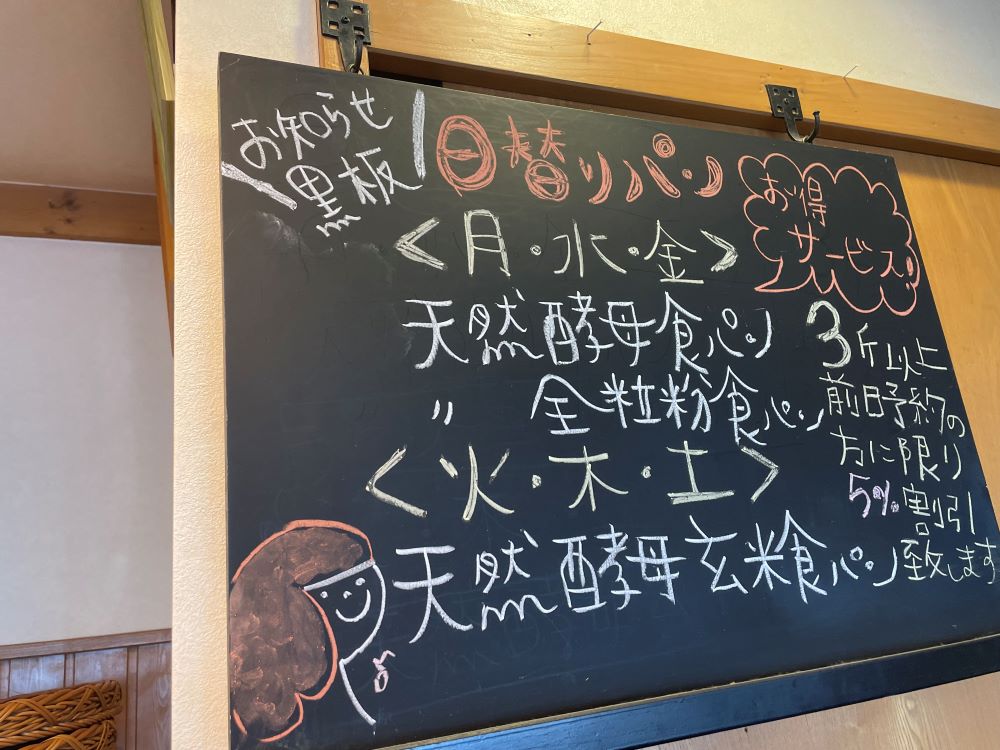 お知らせ
黒板
日替りパン
<月・水・金>
天然酵母食パン
〃 全粒粉食パン
<火・木・土>
天然酵母玄米食パン
お得
サービス!
3斤以上
前日予約の
方に限り
5%割引
致します